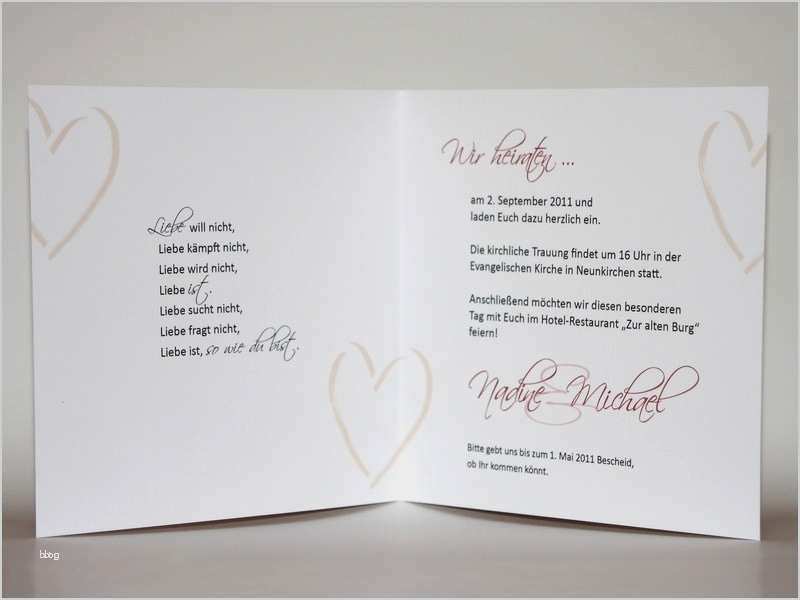 Liebe will nicht,
Liebe kämpft nicht,
Liebe wird nicht,
Liebe ist.
Liebe sucht nicht,
Liebe fragt nicht,
Liebe ist, so wie du bist.
Wir heiraten ...
am 2. September 2011 und
laden Euch dazu herzlich ein.
Die kirchliche Trauung findet um 16 Uhr in der
Evangelischen Kirche in Neunkirchen statt.
Anschließend möchten wir diesen besonderen
Tag mit Euch im Hotel-Restaurant „Zur alten Burg“
feiern!
Nadine & Michael
Bitte gebt uns bis zum 1. Mai 2011 Bescheid,
ob Ihr kommen könnt.
bbog